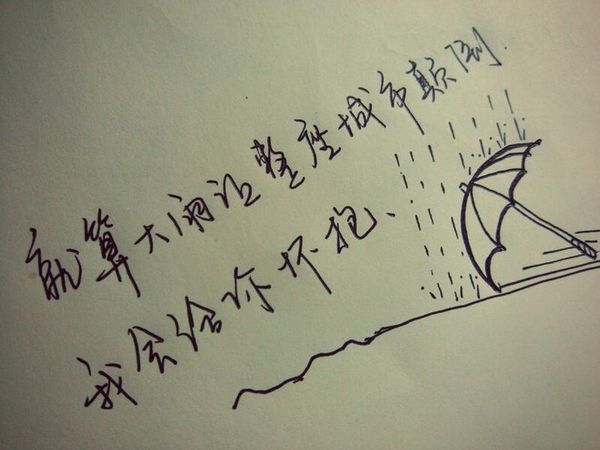 就算大雨让整座城市颠倒.
我会给你怀抱、